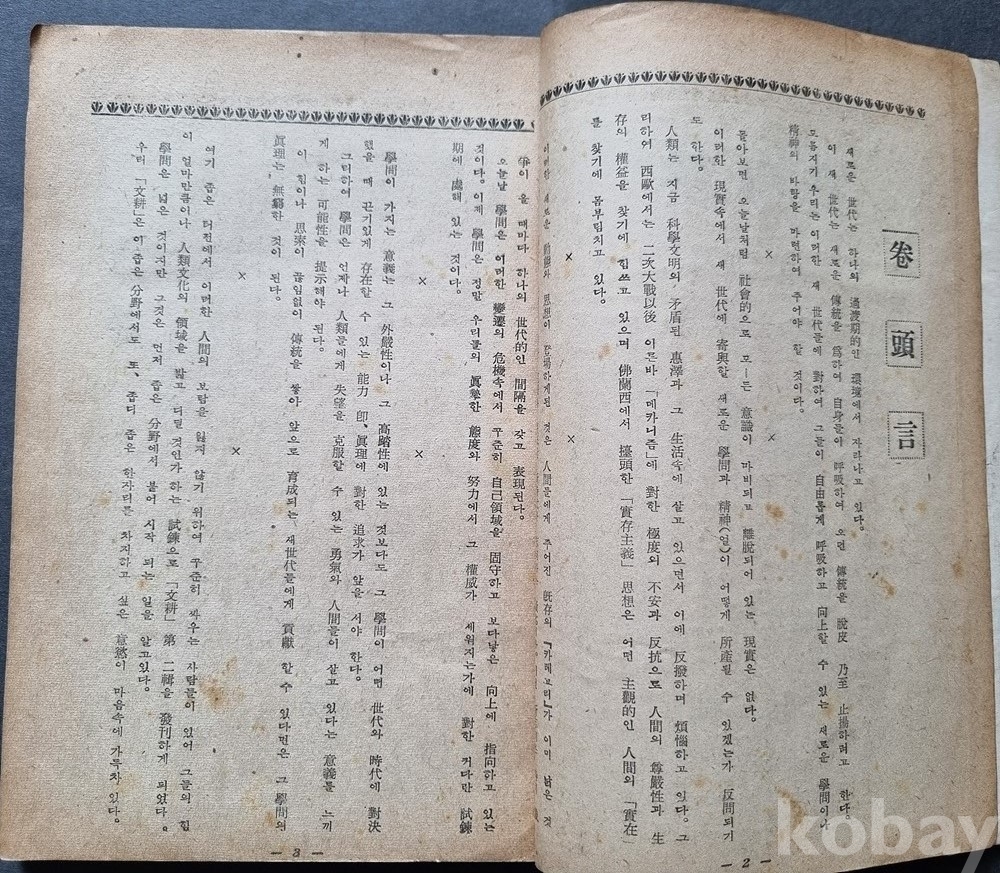 卷頭言
새로운 世代는 하나의 過渡期的인 環境에서 자라나고 있다.
이 새 世代는 새로운 傳統을 爲하여 自身들이 呼吸하여 오던 傳統을 脫皮 乃至 止揚하려고 한다.
도릅지기 우리는 이러한 새 世代들에 對하여 그들이 自由롭게 呼吸하고 向上할 수 있는 새로운 學問이나
精神의 바탕을 마련하여 주어야 할 것이다.
× ×
돌아보면 오늘날처럼 社會的으로 모—든 意識이 마비되고 離脫되어 있는 現實은 없다.
이러한 現實속에서 새 世代에 寄與할 새로운 學問과 精神(얼)이 어떻게 所產될 수 있겠는가 反問되기
도 한다.
人類는 지금 科學文明의 矛盾된 惠澤과 그 生活속에 살고 있으면서 이에 反撥하며 煩惱하고 있다. 그
리하여 西歐에서는 二次大戰以後 이른바 「메카니즘」에 對한 極度의 不安과 反抗으로 人間의 尊嚴性과 生
存의 權益을 찾기에 힘쓰고 있으며 佛蘭西에서 擡頭한 「實存主義」 思想은 어떤 主觀的인 人間의 「實在」
를 찾기에 몸부림치고 있다.
× ×
이러한 새로운 思想이 登場하게된 것은 人間들에게 주어진 旣存의 「카테고리」가 이미 낡은 것
이 올 때마다 하나의 世代的인 間隔을 갖고 表現된다.
오늘날 學問은 이러한 變遷의 危機속에서 꾸준히 自己領域을 固守하고 보다낳은 向上에 指向하고 있는
것이다. 이제 學問은 정말 우리들의 眞摯한 態度와 努力에서 그 權威가 세워지는가에 對한 커다란 試鍊
期에 處해 있는 것이다.
× ×
學問이 가지는 意義는 그 外嚴性이나 그 高踏性에 있는 것보다도 그 學問이 어떤 世代와 時代에 對決
했을 때 끈기있게 存在할 수 있는 能力 卽、眞理에 對한 追求가 앞을 서야 한다.
그리하여 學問은 언제나 人類들에게 失望을 克服할 수 있는 勇氣와 人間들이 살고 있다는 意義를 느끼
게 하는 可能性을 提示해야 된다.
이 힘이나 思索이 끊임없이 傳統을 쌓아 앞으로 育成되는 새世代들에게 貢獻 할 수 있다면은 그 學問의
眞理는 無窮한 것이 된다.
× ×
여기 좁은 터전에서 이러한 人間의 보람을 잃지 않기 위하여 꾸준히 싸우는 사람들이 있어 그들의 힘
이 얼마만큼이나 人類文化의 領域을 밟고 디딜 것인가 하는 試鍊으로 「文耕」 第二輯을 發刊하게 되었다.
學問은 넓은 것이지만 그것은 먼저 좁은 分野에서 붙어 시작 되는 일을 알고있다.
우리 「文耕」은 이 좁은 分野에서도 또, 좁디 좁은 한자리를 차지하고 싶은 意慾이 마음속에 가득차있다.
— 2 —
— 3 —
kobay